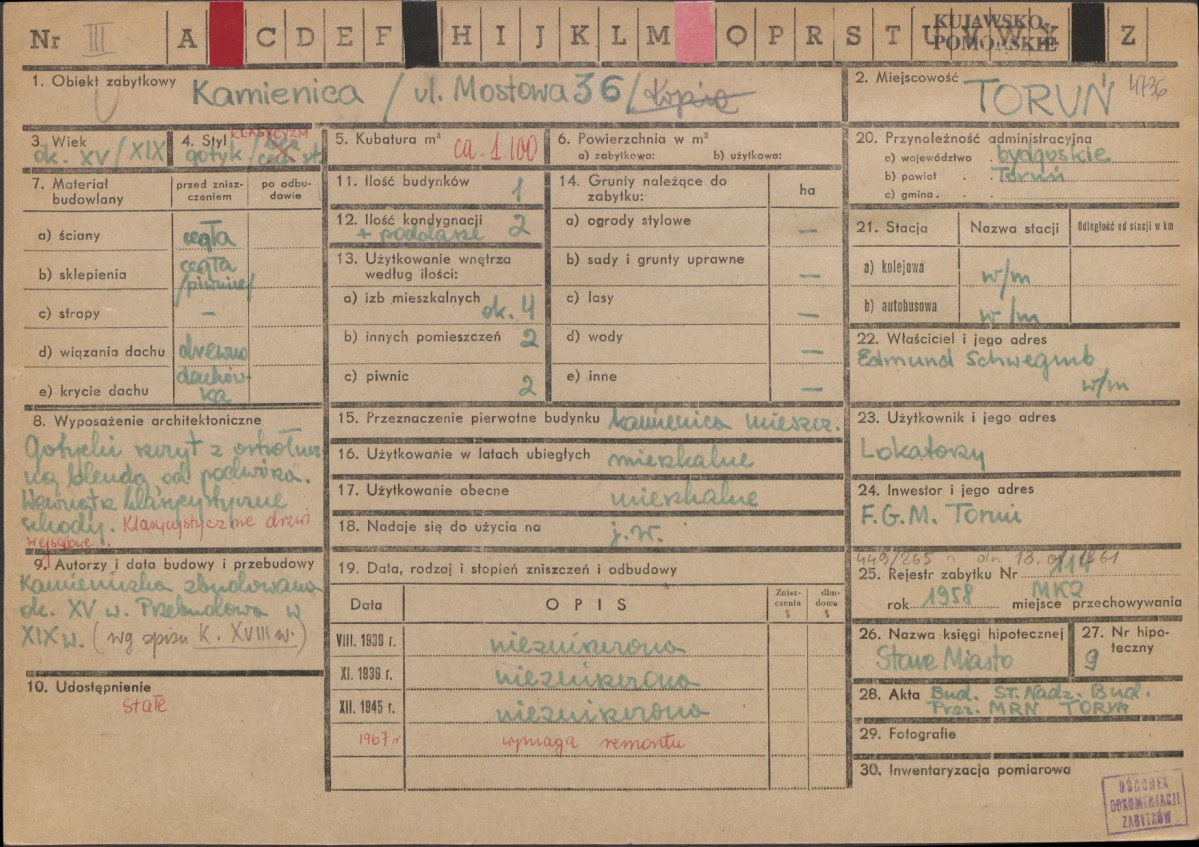 Nr III A C D E F H I J K L M O P R S T U V W Y Z
KUJAWSKO-
POMORSKIE
1. Obiekt zabytkowy Kamienica / ul. Mostowa 36 / kopia
2. Miejscowość TORUŃ 4736
3. Wiek
ok. XV / XIX
4. Styl KLASYCYZM
gotyk /
5. Kubatura m³
ca. 1.100
6. Powierzchnia w m²
a) zabytkowa: b) użytkowa:
7. Materiał budowlany
przed zniszczeniem
po odbudowie
a) ściany cegła
b) sklepienia cegła
/piwnice/
c) stropy –
d) wiązania dachu drewno
e) krycie dachu dachów-
ka
8. Wyposażenie architektoniczne
Gotycki szczyt z ostrołucz-
ną blendą od podwórza.
Wewnątrz klasycystyczne
schody. Klasycystyczne drzwi
wejściowe.
9. Autorzy i data budowy i przebudowy
Kamieniczka zbudowana
ok. XV w. Przebudowa w
XIX w. (wg spisu K. XVIII w.)
10. Udostępnienie
stałe
11. Ilość budynków 1
12. Ilość kondygnacji 2
+ poddasze
13. Użytkowanie wnętrza
według ilości:
a) izb mieszkalnych ok. 4
b) innych pomieszczeń 2
c) piwnic 2
14. Grunty należące do
zabytku:
ha
a) ogrody stylowe –
b) sady i grunty uprawne –
c) lasy –
d) wody –
e) inne –
15. Przeznaczenie pierwotne budynku kamienica mieszcz.
16. Użytkowanie w latach ubiegłych mieszkalne
17. Użytkowanie obecne mieszkalne
18. Nadaje się do użycia na j.w.
19. Data, rodzaj i stopień zniszczeń i odbudowy
Data OPIS Zniszczenia %
VIII. 1939 r. niezniszczona
XI. 1939 r. niezniszczona
XII. 1945 r. niezniszczona
1967 r wymaga remontu
20. Przynależność administracyjna
a) województwo bydgoskie
b) powiat Toruń
c) gmina
21. Stacja Nazwa stacji Odległość od stacji w km
a) kolejowa w/m
b) autobusowa w/m
22. Właściciel i jego adres
Edmund Schwegmb
w/m
23. Użytkownik i jego adres
Lokatorzy
24. Inwestor i jego adres
P.G.M. Toruń
449/265
25. Rejestr zabytku Nr 114
rok 1958 miejsce przechowywania
MKZ
26. Nazwa księgi hipotecznej
Stare Miasto
27. Nr hipo-
teczny
9
28. Akta Bud. ST. Nadz. Bud.
Prez. MRN TORUŃ
29. Fotografie
30. Inwentaryzacja pomiarowa
OŚRODEK
DOKUMENTACJI
ZABYTKÓW